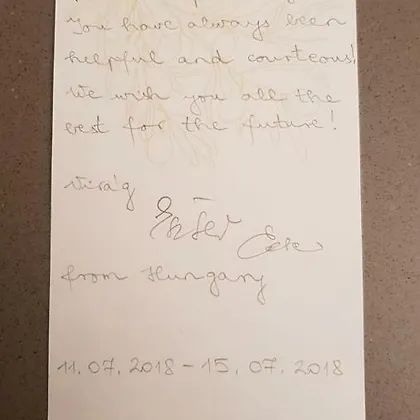 You have always been
helpful and courteous!
We wish you all the
best for the future!
Virág
from Hungary
11.07.2018 - 15.07.2018